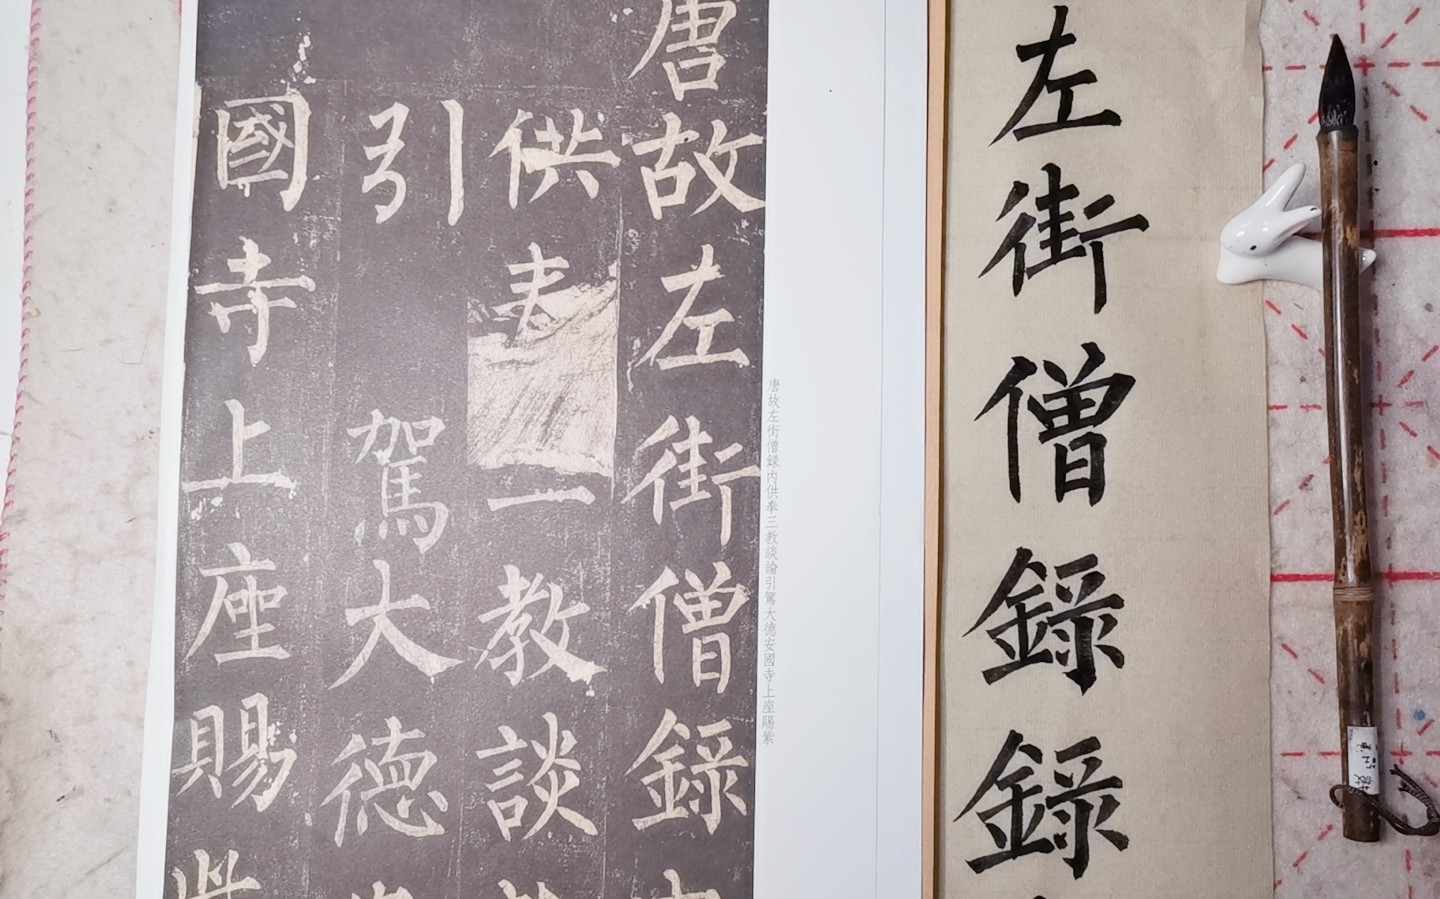 唐故左街僧録
供一教談
引駕大德
國寺上座賜紫
唐故左街僧録内供奉三教談論引駕大德安國寺上座賜紫
左街僧録録